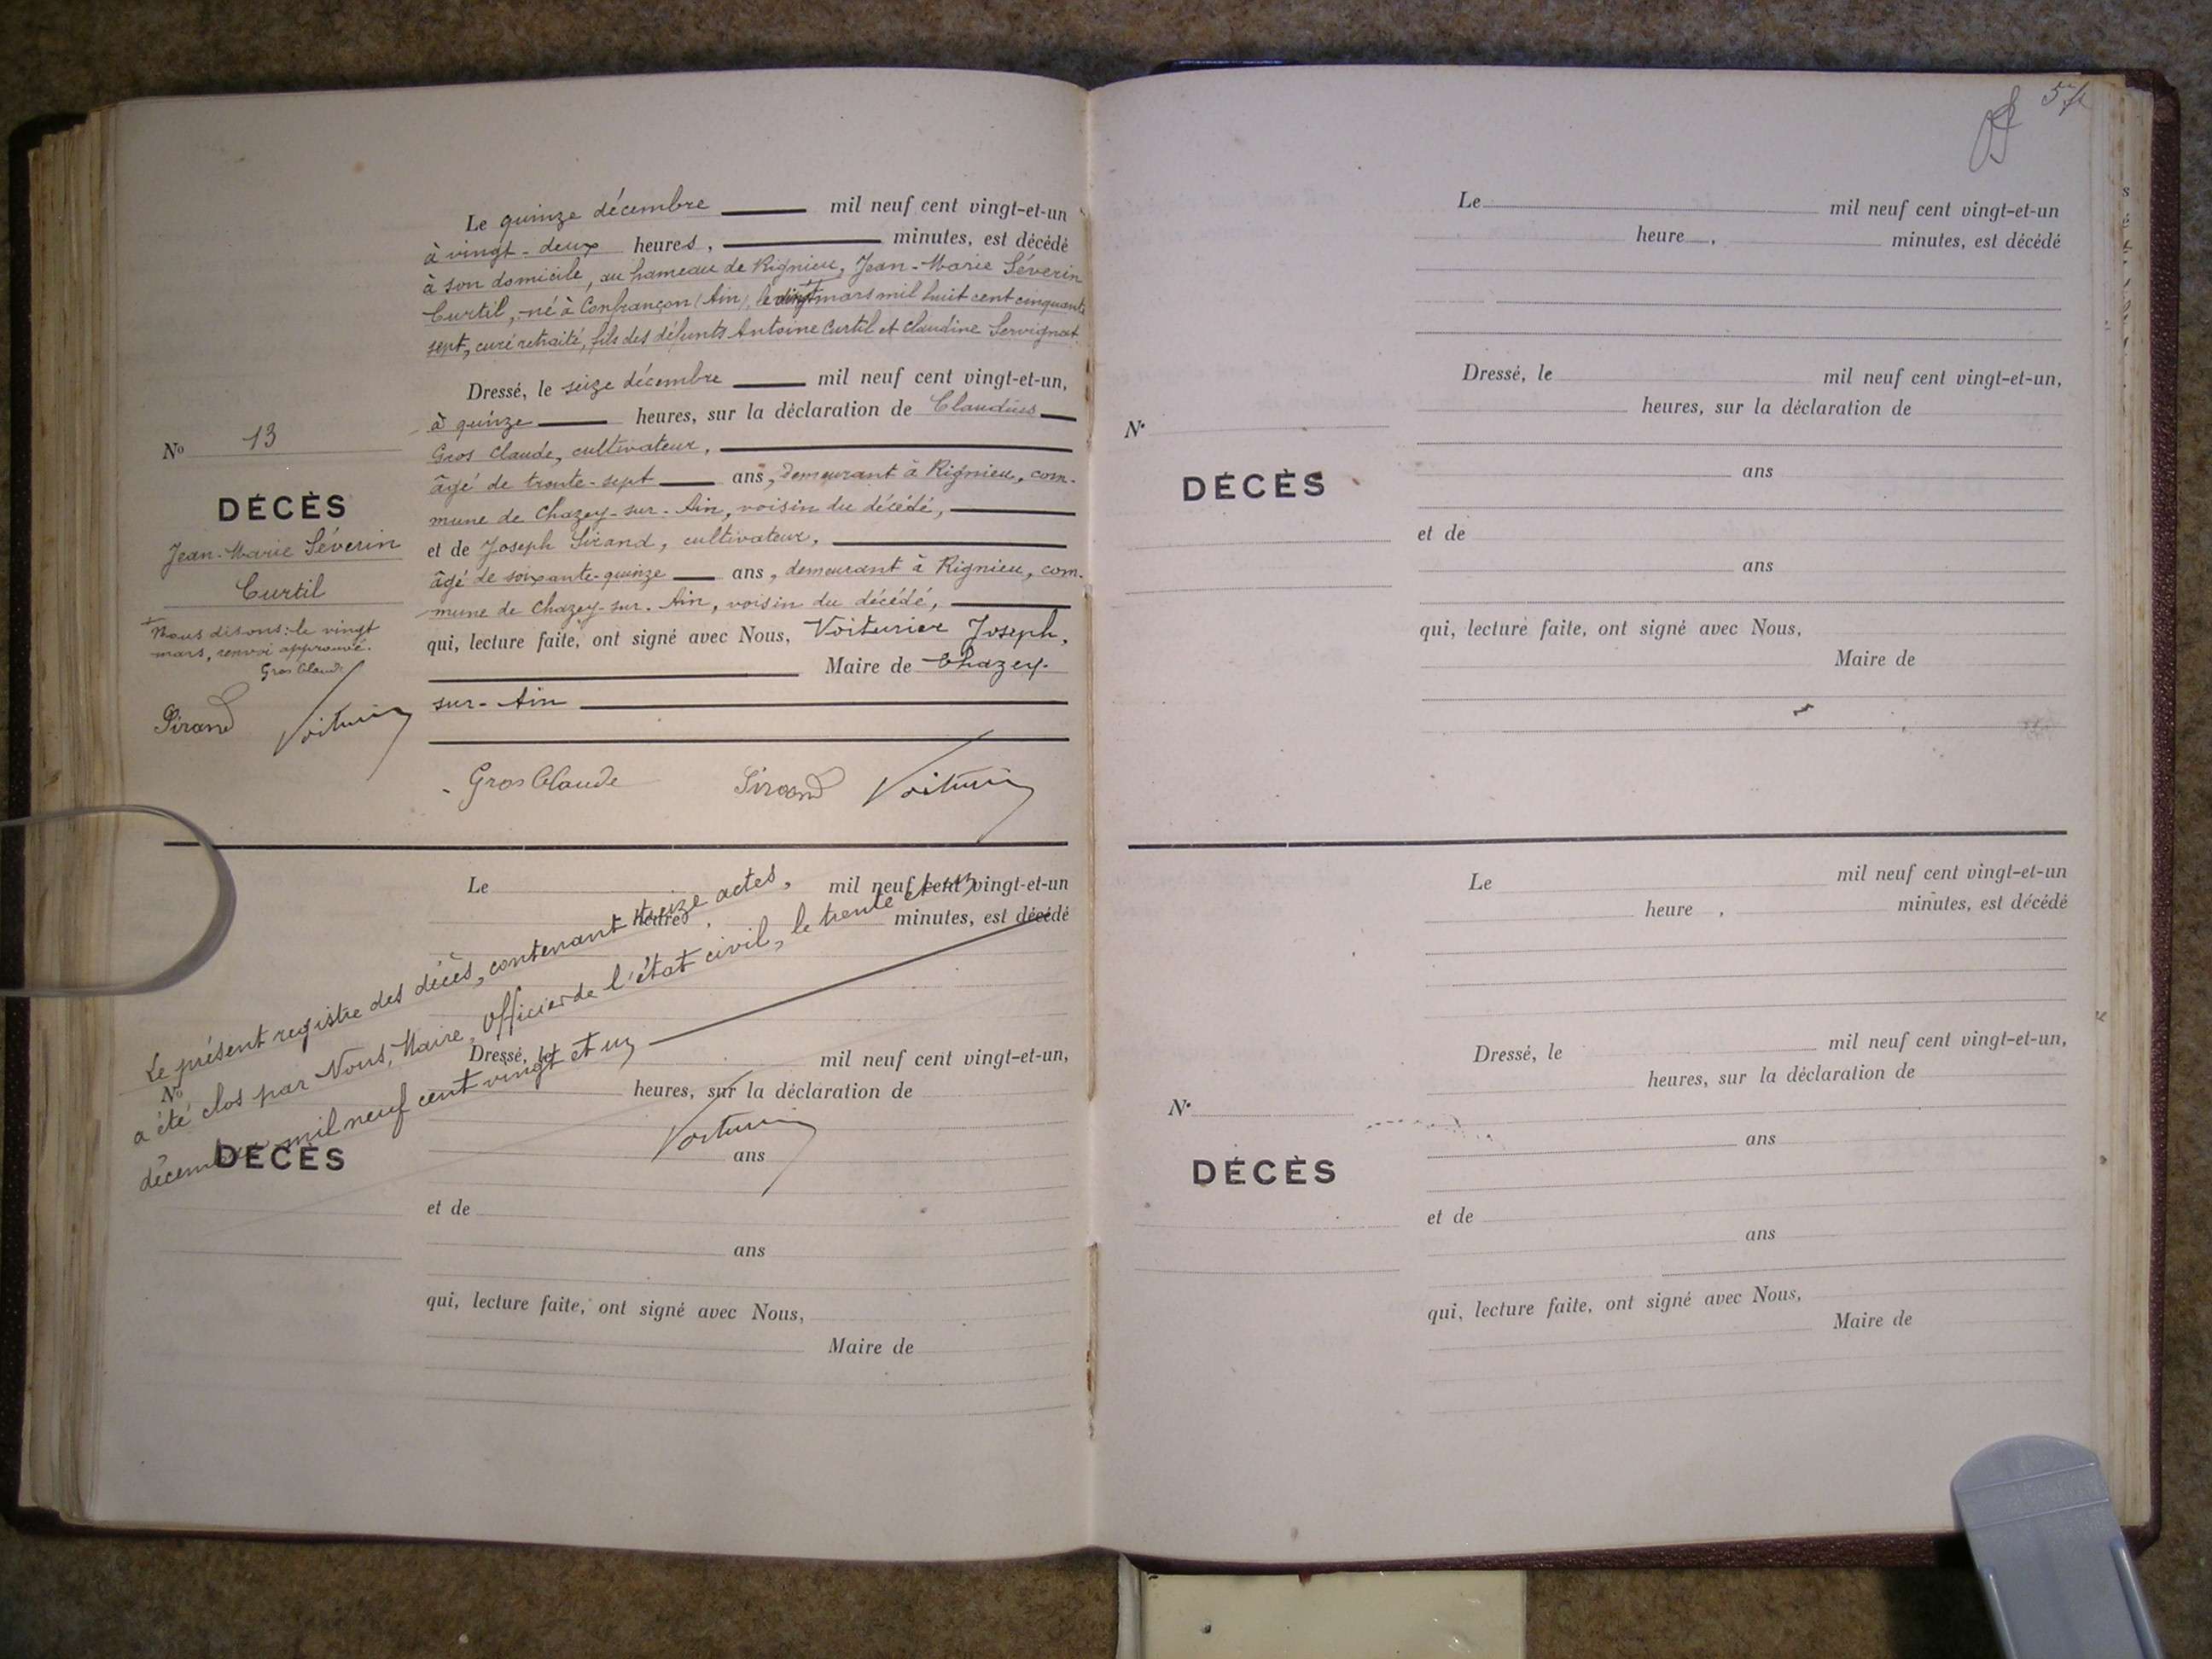 Le quinze décembre mil neuf cent vingt-et-un
à vingt-deux heures, minutes, est décédé
à son domicile, au hameau de Rignieu, Jean-Marie Séverin
Curtil, né à Confrançon (Ain), le vingt mars mil huit cent cinquante
sept, curé retraité, fils des défunts Antoine Curtil et Claudine Servignat.
Dressé, le seize décembre mil neuf cent vingt-et-un,
à quinze heures, sur la déclaration de Claudius
Gros Claude, cultivateur,
âgé de trente-sept ans, demeurant à Rignieu, com-
mune de Chazey-sur-Ain, voisin du décédé,
et de Joseph Sirand, cultivateur,
âgé de soixante-quinze ans, demeurant à Rignieu, com-
mune de Chazey-sur-Ain, voisin du décédé,
qui, lecture faite, ont signé avec Nous, Voiturier Joseph,
Maire de Chazey-
sur-Ain
Gros Claude Sirand Voiturier
No 13
DÉCÈS
Jean-Marie Séverin
Curtil
Nous disons: le vingt
mars, renvoi approuvé.
Gros Claude
Sirand Voiturier
Le mil neuf cent vingt-et-un
heures, minutes, est décédé
Le présent registre des décès, contenant treize actes,
a été clos par Nous, Maire, Officier de l'état civil, le trente et un
décembre mil neuf cent vingt et un
Voiturier
Dressé, le mil neuf cent vingt-et-un,
heures, sur la déclaration de
No
DÉCÈS
ans
et de
ans
qui, lecture faite, ont signé avec Nous,
Maire de
Le mil neuf cent vingt-et-un
heure, minutes, est décédé
Dressé, le mil neuf cent vingt-et-un,
heures, sur la déclaration de
N•
DÉCÈS
ans
et de
ans
qui, lecture faite, ont signé avec Nous,
Maire de
Le mil neuf cent vingt-et-un
heure, minutes, est décédé
Dressé, le mil neuf cent vingt-et-un,
heures, sur la déclaration de
N•
DÉCÈS
ans
et de
ans
qui, lecture faite, ont signé avec Nous,
Maire de